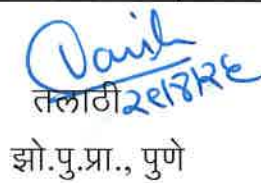 तलाठी २९/४/२६
झो.पु.प्रा., पुणे